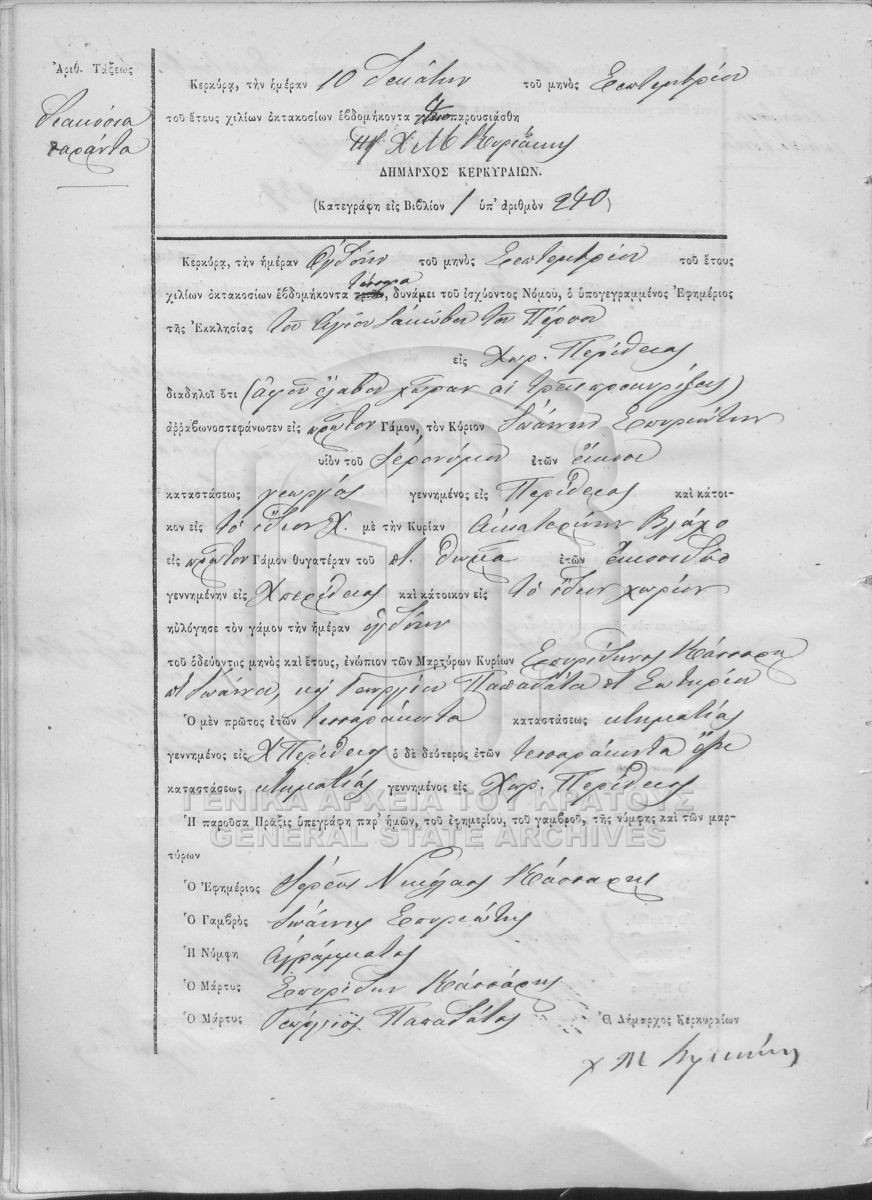 Ἀριθ. Τάξεως
Διακόσια
σαράντα
Κερκύρᾳ, τὴν ἡμέραν 10 Δεκάτην τοῦ μηνὸς Σεπτεμβρίου
τοῦ ἔτους χιλίων ὀκτακοσίων ἑβδομήκοντα παρουσιάσθη
Χ Μ Κυριάκης
ΔΗΜΑΡΧΟΣ ΚΕΡΚΥΡΑΙΩΝ.
(Κατεγράφη εἰς Βιβλίον 1 ὑπ' ἀριθμὸν 240)
Κερκύρᾳ, τὴν ἡμέραν Ὀγδόην τοῦ μηνὸς Σεπτεμβρίου τοῦ ἔτους
τέσσαρα
χιλίων ὀκτακοσίων ἑβδομήκοντα , δυνάμει τοῦ ἰσχύοντος Νόμου, ὁ ὑπογεγραμμένος Ἐφημέριος
τῆς Ἐκκλησίας τοῦ Ἁγίου Ἰακώβου τοῦ Πέρσου
εἰς Χωρ. Περίθειας
διαδηλοῖ ὅτι (ἀφοῦ ἔλαβον χώραν αἱ τρεῖς προκηρύξεις)
ἀρραβωνοστεφάνωσεν εἰς πρῶτον Γάμον, τὸν Κύριον Ἰωάννην Σπυριώτην
υἱὸν τοῦ Ἱερονύμου ἐτῶν εἴκοσι
καταστάσεως γεωργός γεννημένος εἰς Περίθειας καὶ κάτοι-
κον εἰς τὸ ἴδιον Χ. μὲ τὴν Κυρίαν Αἰκατερίνην Βλάχο
εἰς πρῶτον Γάμον θυγατέραν τοῦ Θωμᾶ ἐτῶν εἴκοσι δύο
γεννημένην εἰς Χ Περίθειας καὶ κάτοικον εἰς τὸ ἴδιον χωρίον
ηὐλόγησε τὸν γάμον τὴν ἡμέραν ὀγδόην
τοῦ ὁδεύοντος μηνὸς καὶ ἔτους, ἐνώπιον τῶν Μαρτύρων Κυρίων Σπυρίδωνος Κάσσαρη
Ἰωάννου, καὶ Γεωργίου Παπαδάτα Σωτηρίου
Ὁ μὲν πρῶτος ἐτῶν τεσσαράκοντα καταστάσεως κτηματίας
γεννημένος εἰς Χ Περίθειας ὁ δὲ δεύτερος ἐτῶν τεσσαράκοντα
καταστάσεως κτηματίας γεννημένος εἰς Χωρ. Περίθειας
Ἡ παροῦσα Πρᾶξις ὑπεγράφη παρ' ἡμῶν, τοῦ ἐφημερίου, τοῦ γαμβροῦ, τῆς νύμφης καὶ τῶν μαρ-
τύρων
Ὁ Ἐφημέριος Ἱερεὺς Νικόλαος Κάσσαρης
Ὁ Γαμβρὸς Ἰωάννης Σπυριώτης
Ἡ Νύμφη ἀγράμματος
Ὁ Μάρτυς Σπυρίδων Κάσσαρης
Ὁ Μάρτυς Γεώργιος Παπαδάτος Ὁ Δήμαρχος Κερκυραίων
Χ Μ Κυριάκης
ΓΕΝΙΚΑ ΑΡΧΕΙΑ ΤΟΥ ΚΡΑΤΟΥΣ
GENERAL STATE ARCHIVES